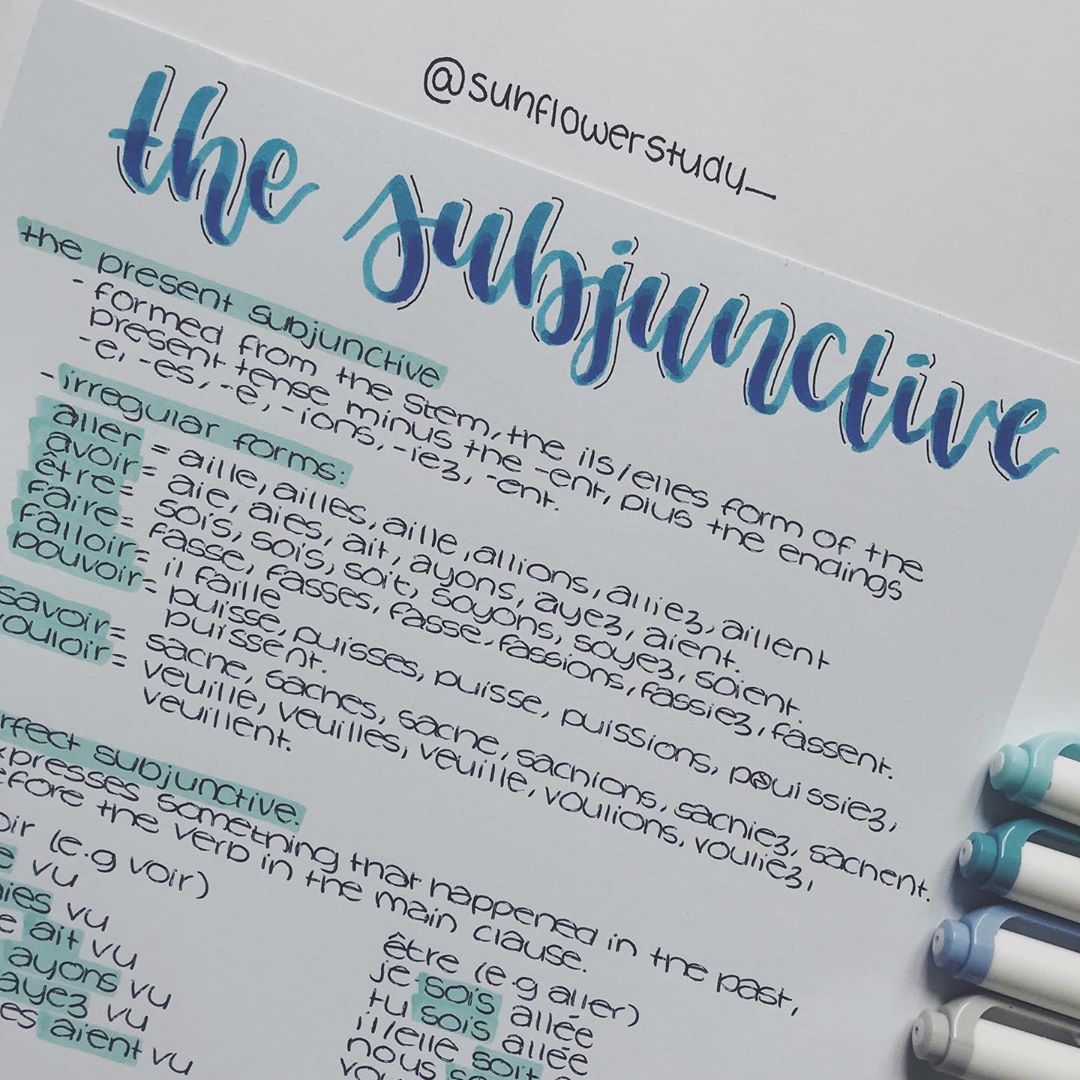 @sunflowerstudy_
the subjunctive
the present subjunctive
- formed from the stem, the ils/elles form of the
present tense minus the -ent, plus the endings
-e, -es, -e, -ions, -iez, -ent.
- irregular forms:
aller = aille, ailles, aille, allions, alliez, aillent
avoir = aie, aies, ait, ayons, ayez, aient.
être = sois, sois, soit, soyons, soyez, soient.
faire = fasse, fasses, fasse, fassions, fassiez, fassent.
falloir = il faille
pouvoir = puisse, puisses, puisse, puissions, puissiez,
puissent.
savoir = sache, saches, sache, sachions, sachiez, sachent.
vouloir = veuille, veuilles, veuille, voulions, vouliez,
veuillent.
rfect subjunctive.
xpresses something that happened in the past,
efore the verb in the main clause.
oir (e.g voir)
e vu
aies vu
e ait vu
ayons vu
ayez vu
es aient vu
être (e.g aller)
je sois allée
tu sois allée
il/elle soit
nous